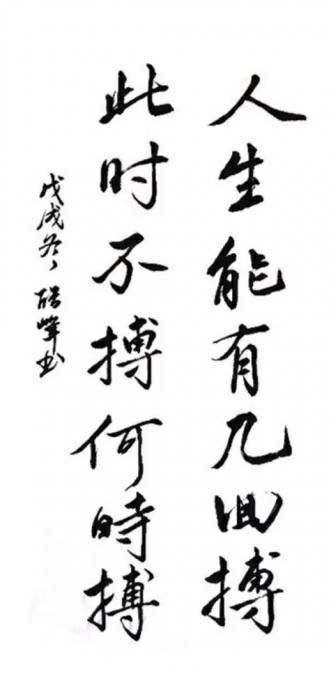 人生能有几回搏
此时不搏何時搏
戊戌冬、硌峰书